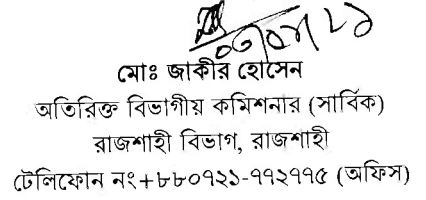 মোঃ জাকীর হোসেন
অতিরিক্ত বিভাগীয় কমিশনার (সার্বিক)
রাজশাহী বিভাগ, রাজশাহী
টেলিফোন নং+৮৮০৭২১-৭৭২৭৭৫ (অফিস)